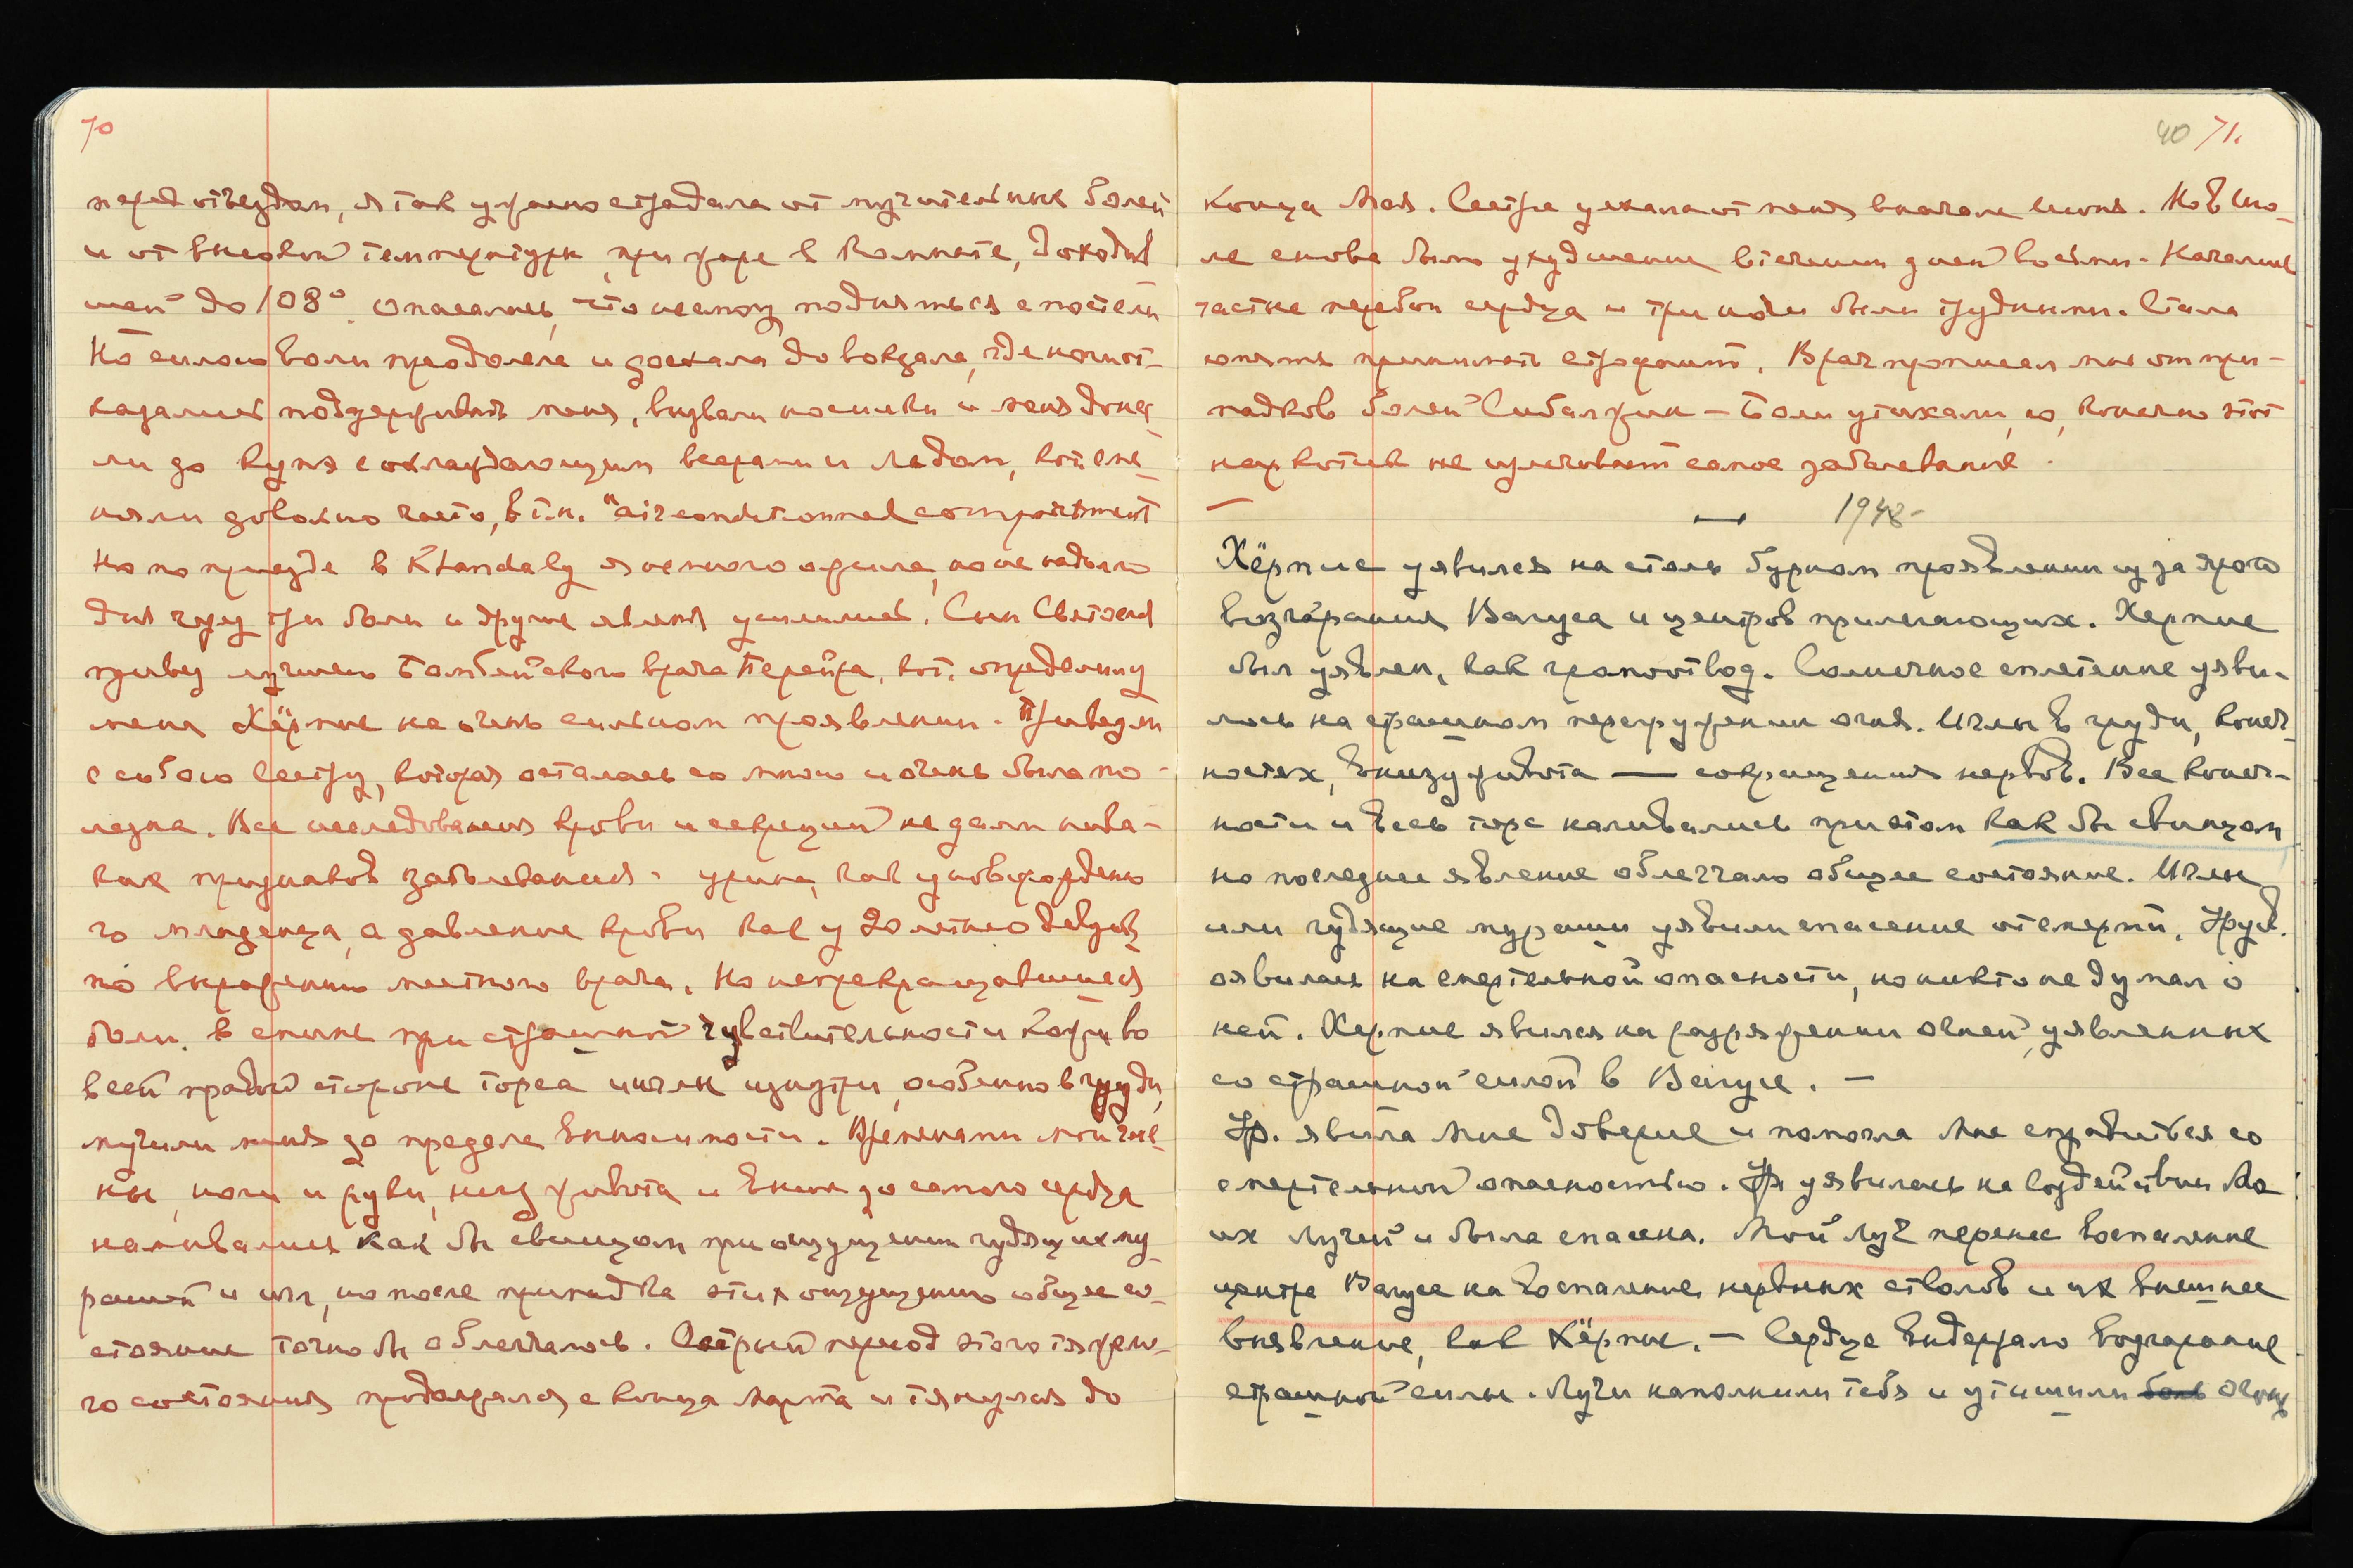 70
перед отъездом, я так ужасно страдала от мучительных болей
и от высокой температуры, при жаре в комнате, доходив
шей до 108°. Опасались, что не смогу подняться с постели
Но силою воли преодолела и доехала до вокзала, где
кадались поддерживать меня, вызвали носилки и меня донес
ли до купэ с охлаждающими веерами и льдом, кот. сме_
няли довольно часто, в т.н. "airconditionned compartment
Но по приезде в Khandaly я немного ожила, но не надолго
дня через три боли и другие явления усилились. Сын Светосл
привез лучшего Бомбейского врача Перейра, кот. определил у
меня Хёрпис на очень сильном проявлении. Привезли
с собою Сестру, которая осталась со мною и очень была по-
лезна. Все исследования крови и секреций не дали ника-
ких признаков заболевания. урина, как у новорожденно
го младенца, а давление крови как у 20 летней девушки
по выражению местного врача. Но непрекращавшиеся
боли в спине при страшной чувствительности кожи во
всей правой стороне торса и иглы изнутри, особенно в груди,
мучили меня до предела выносимости. Временами мои чле_
ны, ноги и руки, низ живота и выше до самого сердца
наливались как бы свинцом при ощущении гудящих му_
рашей и игл, но после припадка этих ощущений общее со_
стояние точно бы облегчалось. Острый период этого тяжело_
го состояния продолжался с конца Марта и тянулся до
40 71.
конца Мая. Сестра уехала от меня вначале июня. Но в Ию_
ле снова было ухудшение в течении дней восьми. Начались
частые перебои сердца и три ночи были трудными. Стала
опять принимать строфант. Врач прописал мне от при-
падков болей Сибалжин – Боли утихали, но, конечно этот
наркотик не излечивает самое заболевание.
1948-
Хёрпис уявился на столь бурном проявлении из за ярого
возгорания Вагуса и центров прилегающих. Херпис
был уявлен, как громоотвод. Солнечное сплетение уяви-
лось на страшном перегружении огня. Иглы в груди, конеч_
ностях, внизу живота — сокращения нервов. Все конеч-
ности и весь торс наливались при этом как бы свинцом
но последнее явление облегчало общее состояние. Иглы
или гудящие мураши уявили спасение от смерти. Урус.
оявилась на смертельной опасности, но никто не думал о
ней. Херпис явился на разряжении огней, уявленных
со страшной силой в Вагусе. —
Ур. явила Мне доверие и помогла Мне справиться со
смертельной опасностью. Ур уявилась на воздействии Мо
их Лучей и была спасена. Мой Луч перенес воспаление
центра Вагуса на воспаление нервных стволов и их внешнее
выявление, как Хёрпис. – Сердце выдержало возгорание
страшной силы. Лучи наполнили тебя и утишили боль огонь